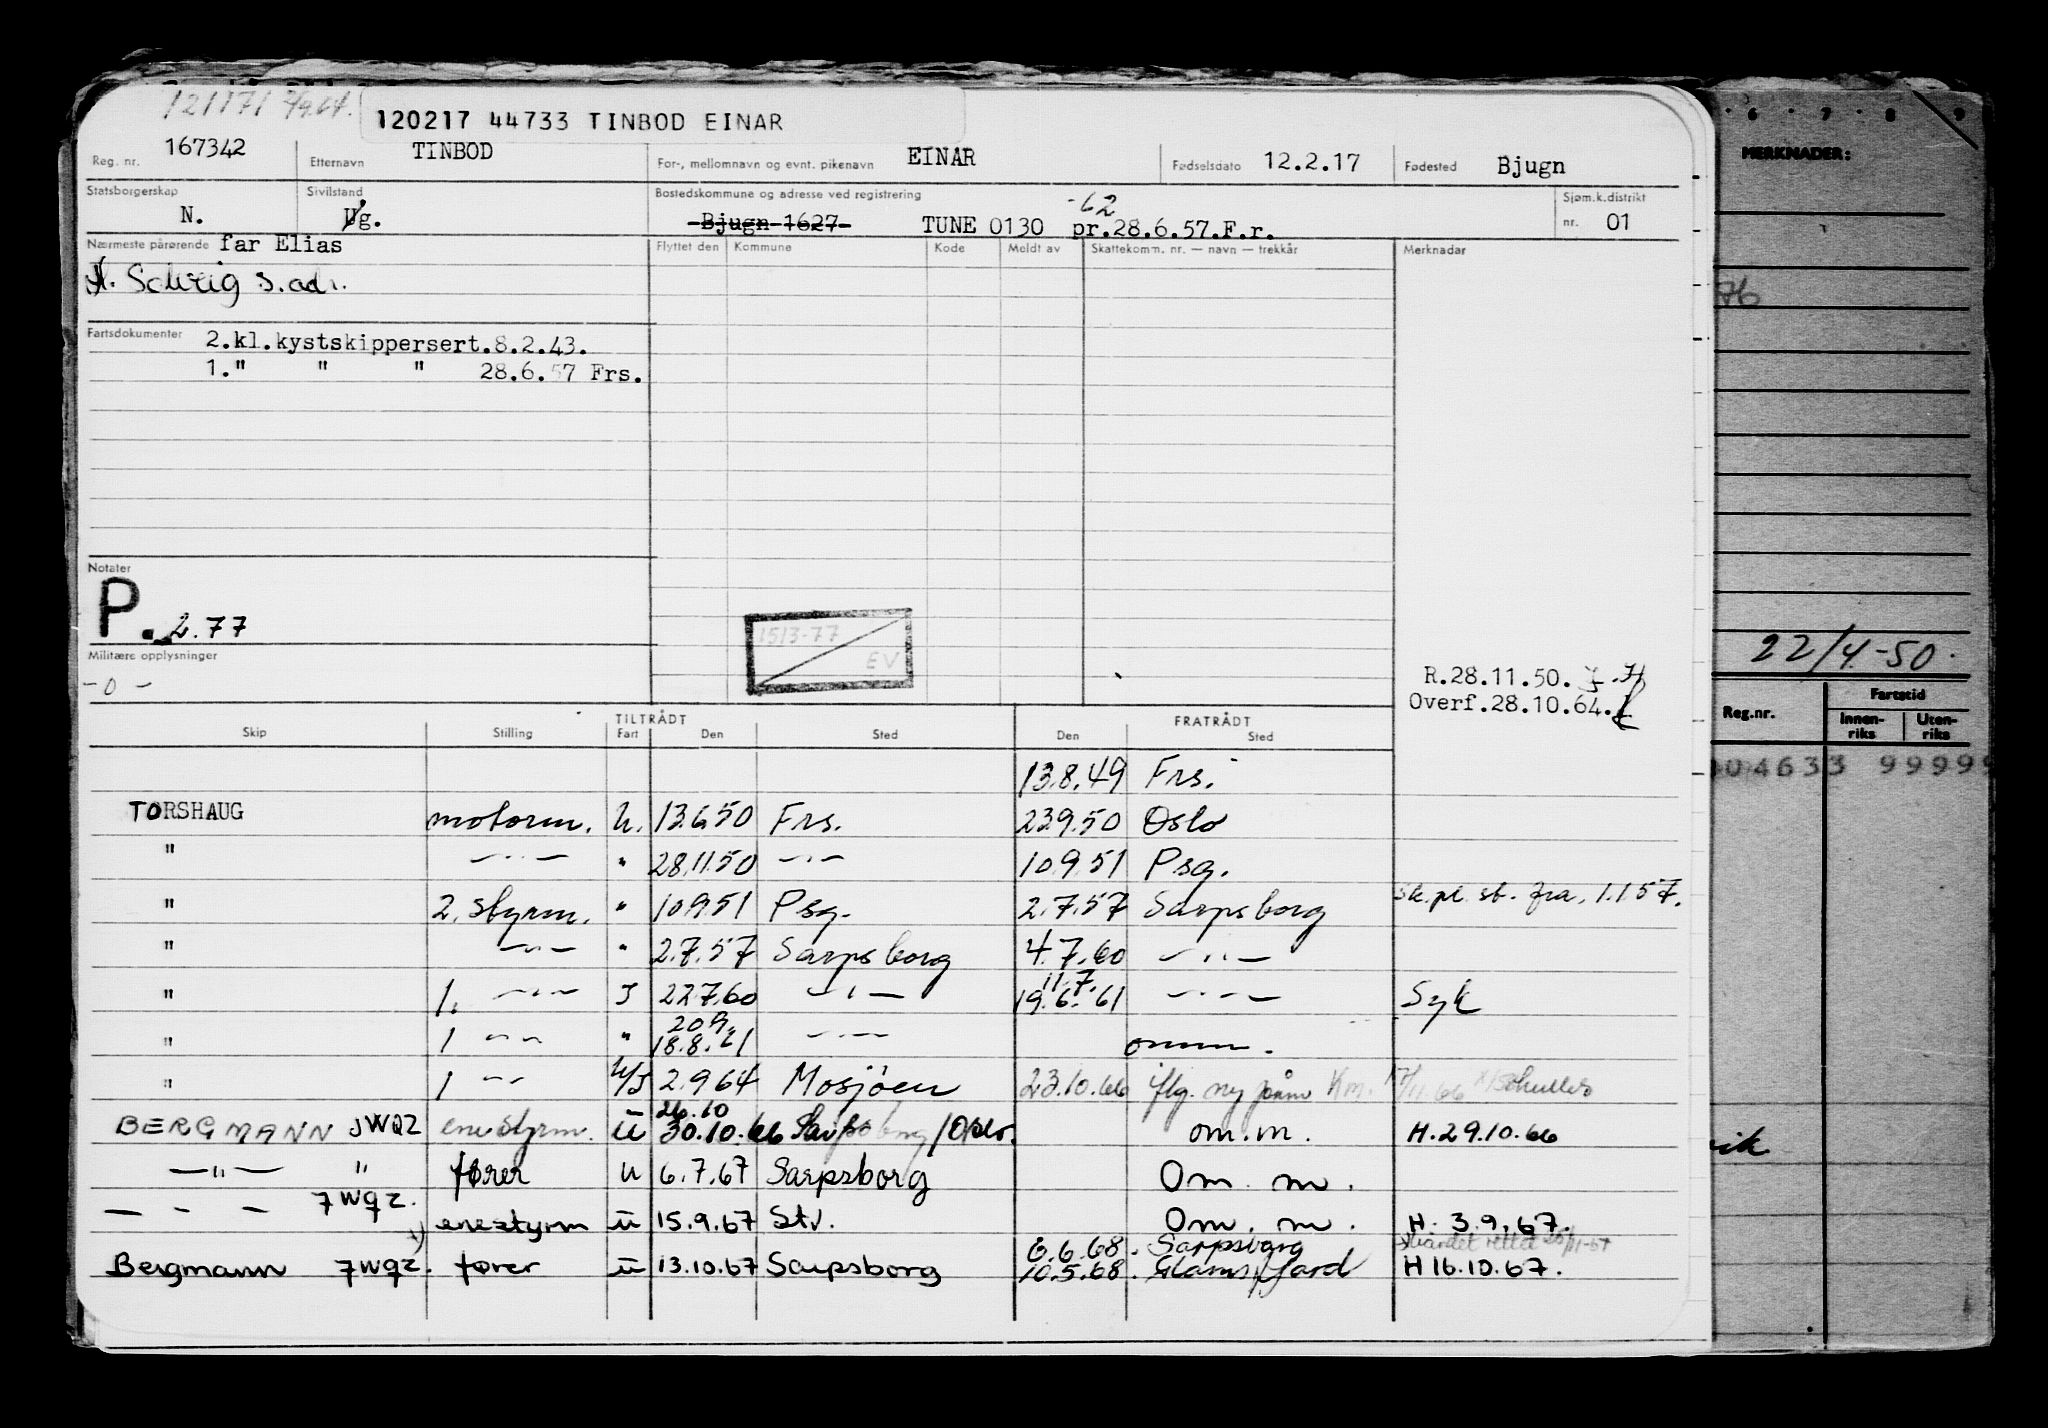 121171 2/9.64.
120217 44733 TINBOD EINAR
Reg. nr. 167342 Etternavn TINBOD For-, mellomnavn og evnt. pikenavn EINAR Fødselsdato 12.2.17 Fødested Bjugn
Statsborgerskap N. Sivilstand Ug. Bostedskommune og adresse ved registrering Bjugn 1627 TUNE 0130 -62 pr.28.6.57.F.r. Sjøm.k.distrikt nr. 01
Nærmeste pårørende far Elias Flyttet den Kommune Kode Meldt av Skattekomm. nr. — navn — trekkår Merknader
H. Solveig s.adr.
Fartsdokumenter 2.kl.kystskippersert.8.2.43.
1." " " 28.6.57 Frs.
Notater
P. 2.77
15/3-77
EV
Militære opplysninger
- 0 -
R.28.11.50.
Overf.28.10.64.
TILTRÅDT FRATRÅDT
Skip Stilling Fart Den Sted Den Sted
13.8.49 Frs.
TORSHAUG motorm. U. 13.6.50 Frs. 23.9.50 Oslo
" — " — " 28.11.50 — " — 10.9.51 Psg.
" 2. styrm. " 10.9.51 Psg. 2.7.57 Sarpsborg sk.pl. st. fra. 1.1.57.
" — " — " 2.7.57 Sarpsborg 4.7.60 — " —
" 1. — " — I 22.7.60 — " — 11.7. 19.6.61 — " — Syk
" 1 — " — " 20.9. 18.8.61 — " — omm.
" 1 — " — U/I 2.9.64 Mosjøen 23.10.66 iflg. ny påm Km. 17/11.66
BERGMANN JWQZ enestyrm. U 26.10 30.10.66 Sarpsborg/Oslo. om.m. H.29.10.66
— " — " fører U 6.7.67 Sarpsborg Om. m.
— - — JWQZ. enestyrm U 15.9.67 Stv. Om. m. H. 3.9.67.
Bergmann JWQZ. fører U 13.10.67 Sarpsborg 6.6.68. Sarpsborg 10.5.68. Glomfjord H 16.10.67.
6 7 8 9
MERKNADER:
76
22/4-50.
Reg.nr. Fartstid
Innen-riks Uten-riks
04633 99999
vik